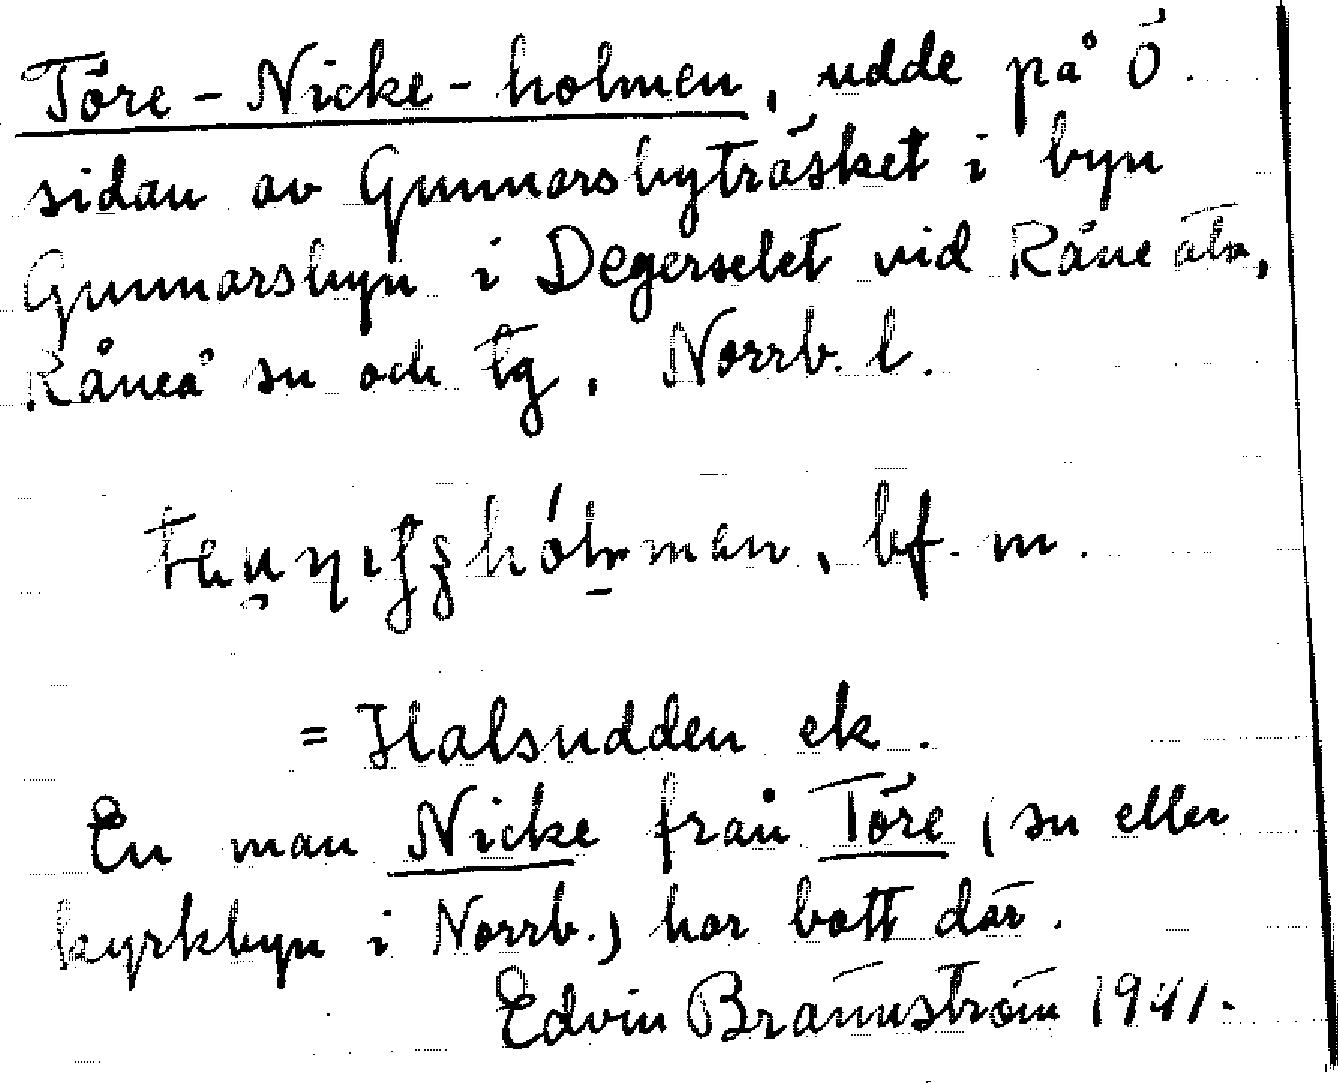 Töre-Nicke-holmen, udde på Ö.
sidan av Gunnarsbyträsket i byn
Gunnarsbyn i Degerselet vid Råne älv,
Råneå sn och tg, Norrb. l.
bf. m.
= Halsudden ek.
En man Nicke från Töre (sn eller
kyrkbyn i Norrb.) har bott där.
Edvin Brännström 1941.